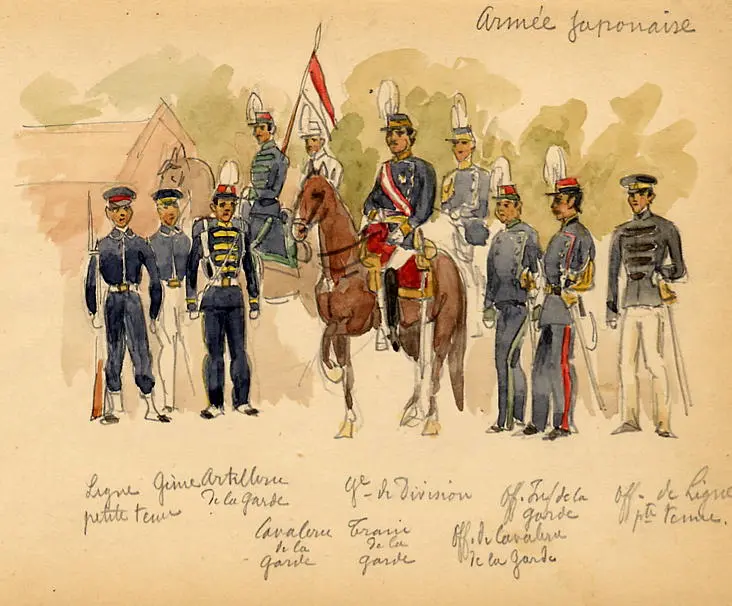 Armée Japonaise
Ligne
petite tenue
Génie
Artillerie
de la Garde
Cavalerie
de la
garde
Train
de la
garde
Gal de Division
Off. de Cavalerie
de la Garde
Off. Inf. de la
garde
Off. de Ligne
pte tenue.